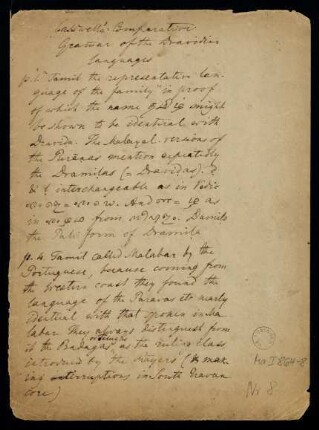 Caldwell's Comparative
Grammar of the Dravidian
Languages
p. 4 Tamil the representative lan-
guage of the family in proof
of which the name தமிழ் might
be shown to be identical with
Dravida. The Malayal. versions of
the Purânas mention repeatedly
the Dramilas (= Dravidas).
& interchangeable as in Vedic
And as
in from Damila
the Pali form of Dramila
p. 4. Tamil called Malabar by the
Portuguese, because coming from
the Western coast they found the
language of the Paravas etc nearly
identical with that spoken in Ma
labar. They always distinguish from
it the Badagas, as the ruling class
introduced by the Nayers (
ing interruptions in South Travan
core)
Ma I 864-8
Nr 8